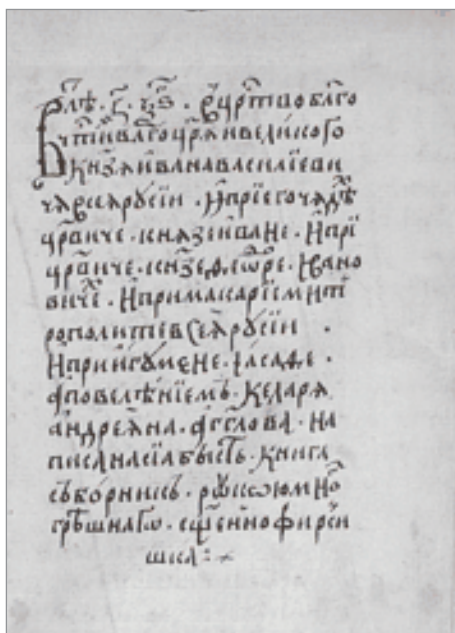 цр҃тво бл҃го
чтиваго цр҃ѧ и великого
кнзѧ ивана василїеви
чѧ всеѧ русїи . И при его чадѣ
цр҃виче . кнѧзе иване . И прї
цр҃виче . кн҃зе ѳеѡре . Ивано
виче . И при макарїем мит
рополите всеѧ русїи .
И при игумене . Іасафе .
повелѣнїемъ . келарѧ
андреѧна . агглова . на
писана сїа бысть . книга
съборникъ . рукою мно
грѣшнагѡ .